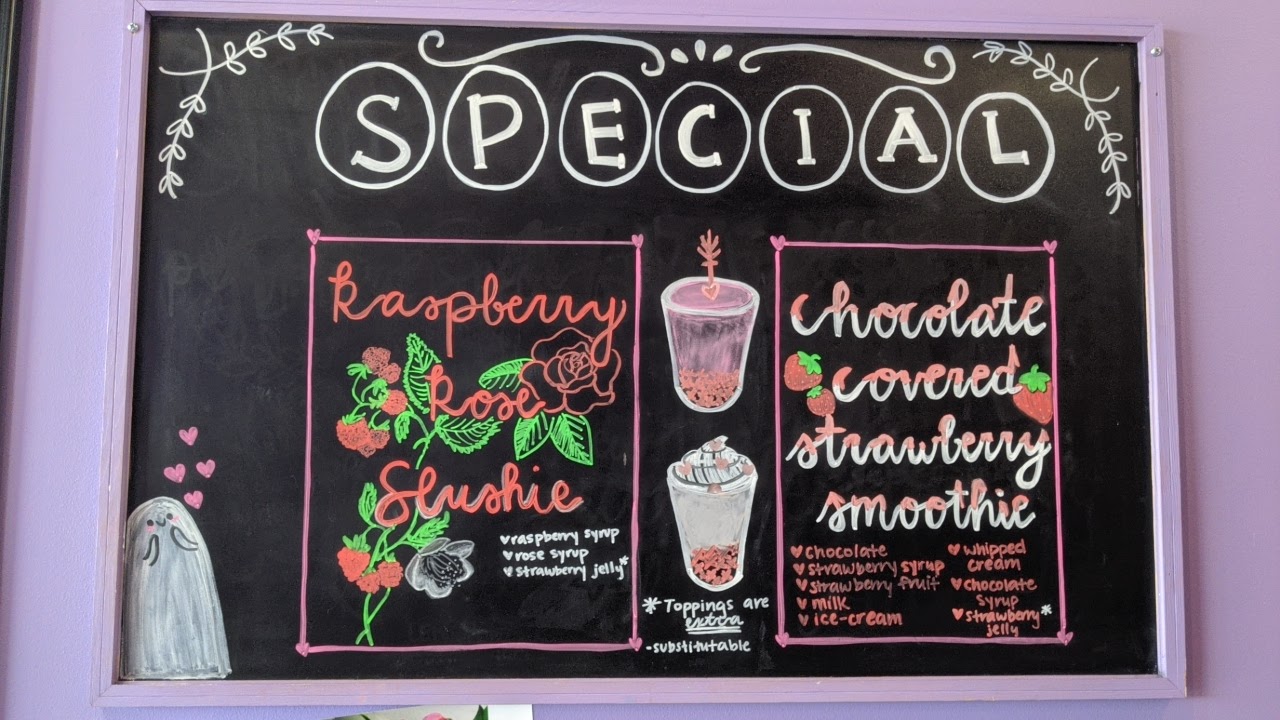 SPECIAL
Raspberry
Rose
Slushie
♥raspberry syrup
♥rose syrup
♥strawberry jelly*
*Toppings are
extra
-substitutable
chocolate
covered
strawberry
smoothie
♥chocolate
♥strawberry syrup
♥strawberry fruit
♥milk
♥ice-cream
♥whipped
cream
♥chocolate
syrup
♥strawberry*
jelly